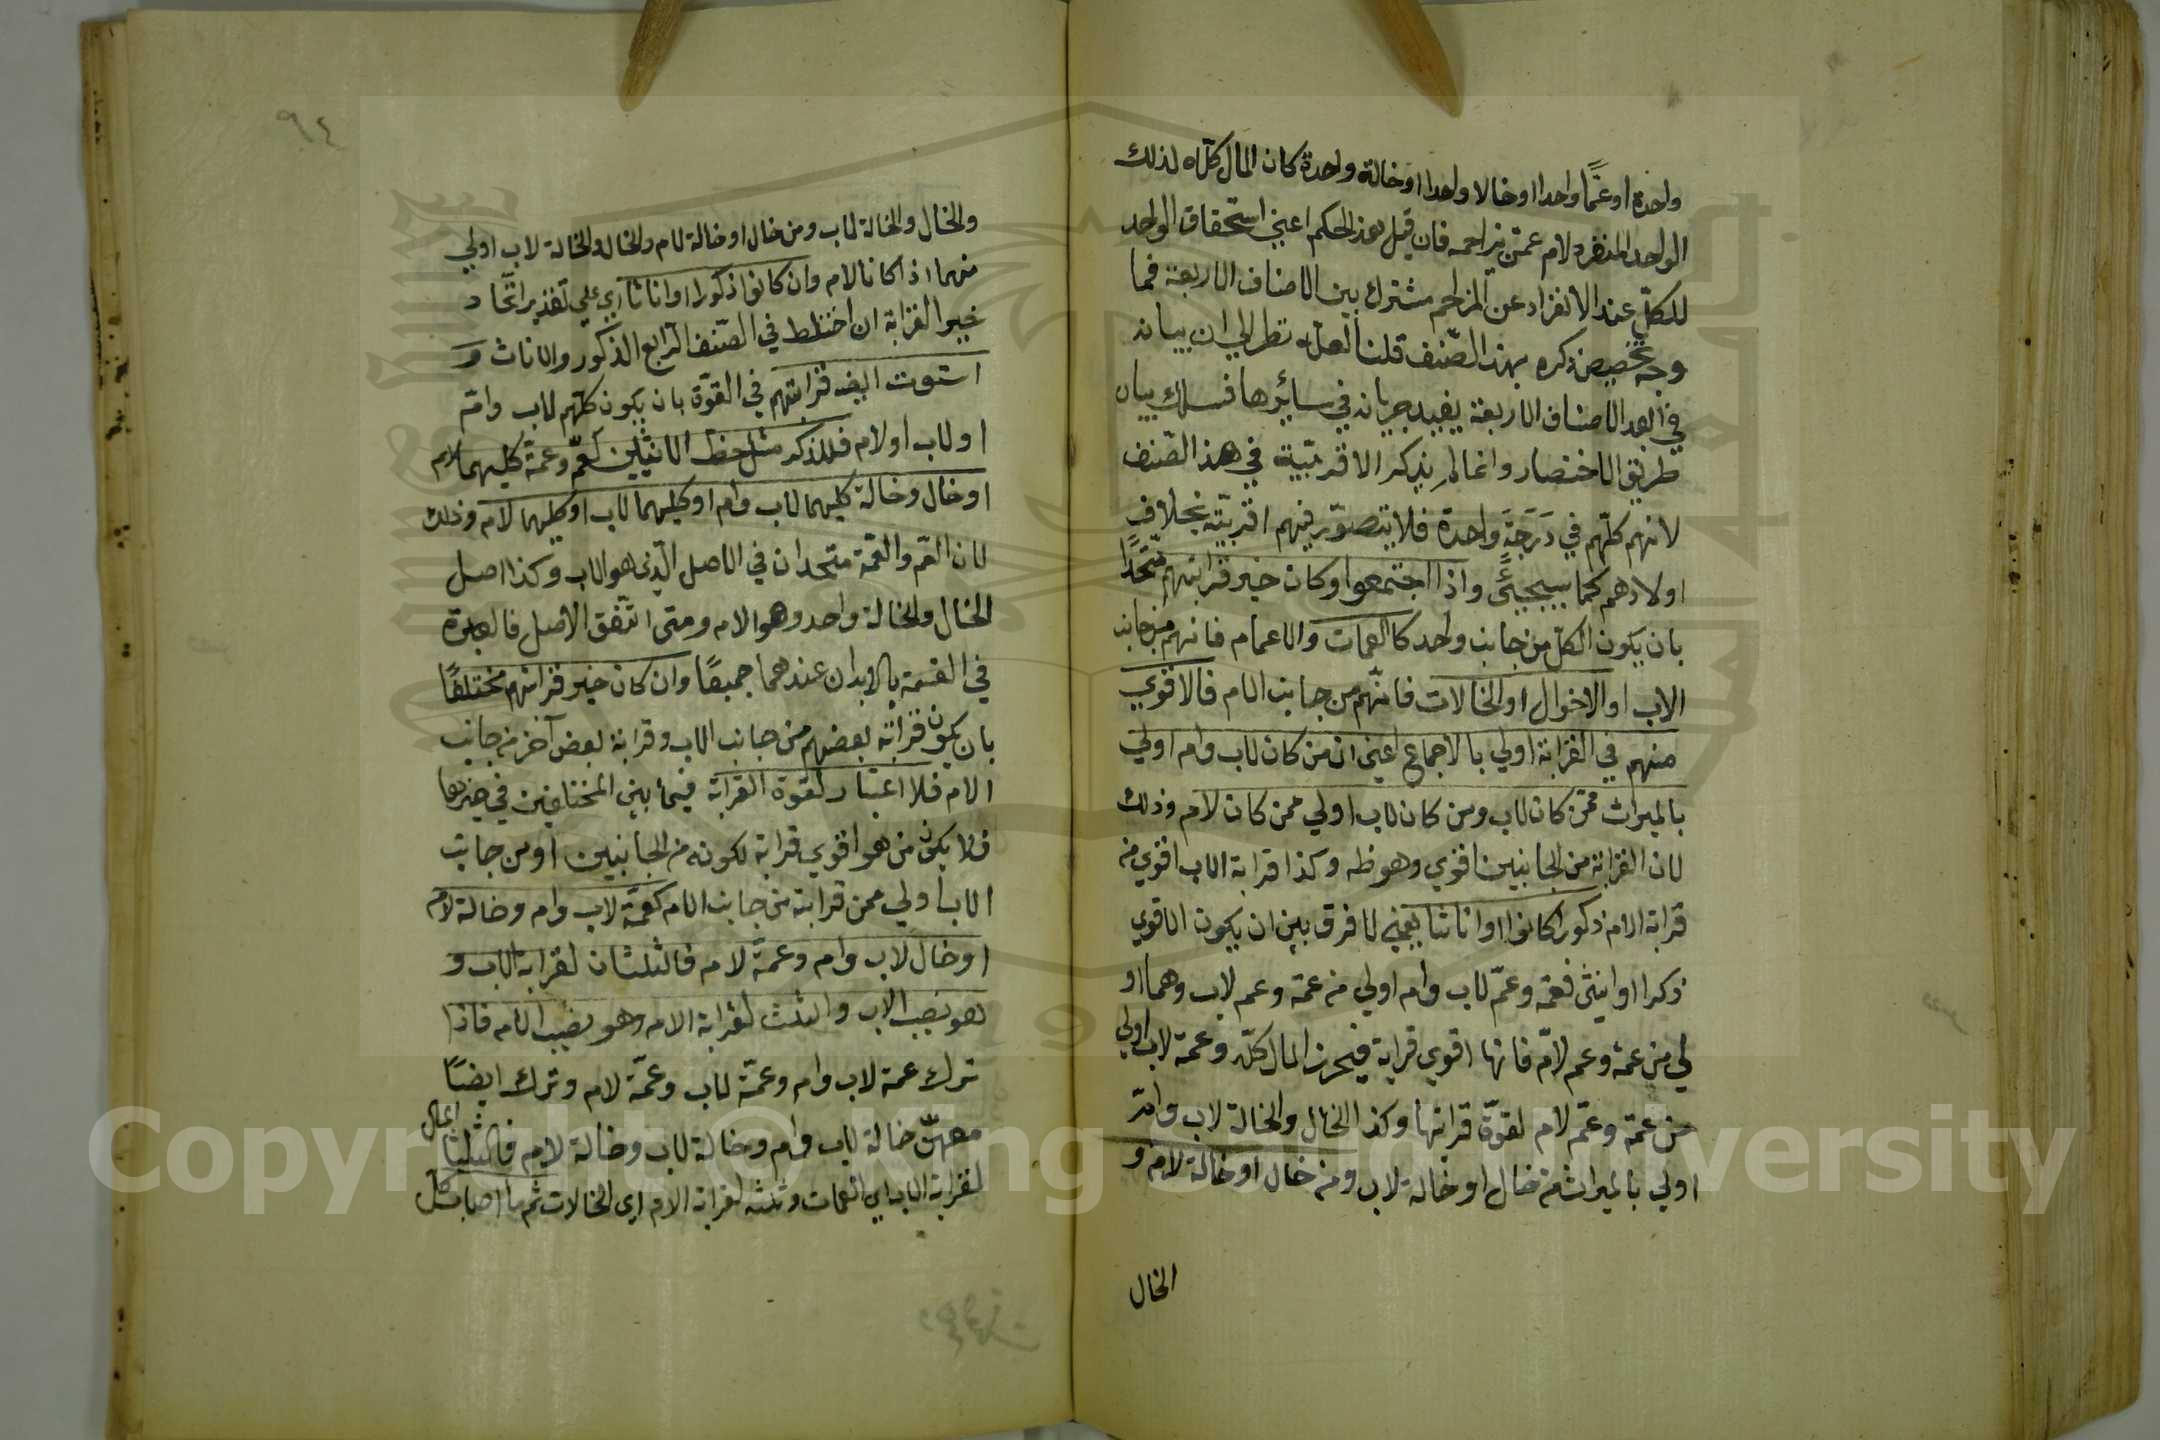 واحدة او عمًّا واحدا او خالا واحدا او خالة واحدة كان المال كلّه لذلك
الواحد المنفرد لام عمن يزاحمه فان قيل هذا الحكم اعني استحقاق الواحد
للكلّ عند الانفراد عن المزاحم مشترك بين الاصناف الاربعة فما
وجه تخصيص ذكره بهذا الصّنف قلنا لعلّه نظر الي ان بيانه
في ابعد الاصناف الاربعة يفيد جريانه في سائرها فسلك بيان
طريق الاختصار وانما لم يذكر الاقربيّة في هذا الصّنف
لانهم كلّهم في دَرَجَةٍ واحدة فلا يتصوّر فيهم اقربيّة بخلاف
اولادهم كما سيجيئ واذا اجتمعوا وكان حيز قرابتهم متّحدًا
بان يكون الكلّ من جانب واحد كالعمات والاعمام فانهم من جانب
الاب او الاخوال او الخالات فانّهم من جانب الام فالاقوي
منهم في القرابة اولي بالاجماع اعني ان من كان لاب وام اولي
بالميراث ممّن كان لاب ومن كان لاب اولي ممن كان لام وذلك
لان القرابة من الجانبين اقوي وهو ظه وكذا قرابة الاب اقوي من
قرابة الام ذكورا كانوا او اناثا يعني لا فرق بين ان يكون الاقوي
ذكرا او انثي فعمة وعمّ لاب وام اولي من عمة وعم لاب وهما او
لي من عمة وعم لامّ فانها اقوي قرابة فيحرز المال كلّه وعمة لاب اولي
من عمة وعمّ لام لقوّة قرابتها وكذا الخال والخالة لاب وامّ
اولي بالميراث من خال او خالة لاب ومن خال او خالة لام و
الخال
٩٤
والخال والخالة لاب ومن خال او خالة لام والخال والخالة لاب اولي
منهما اذا كانا لام وان كانوا ذكورا او اناثا اي علي تقدير اتّحاد
حيز القرابة ان اختلط في الصّنف الرّابع الذكور والاناث و
استوت ايضا قرابتهم في القوّة بان يكون كلّهم لاب وامّ
او لاب او لام فللذكر مثل حظ الانثيين كعمّ وعمة كليهما لام
او خال وخالة كليهما لاب وام او كليهما لاب او كليهما لام وذلك
لان العم والعمّة متحدان في الاصل الّذي هو الاب وكذا اصل
الخال والخالة واحد وهو الام ومتي اتّفق الاصل فالعبرة
في القسمة بالابدان عندهما جميعًا وان كان حيز قرابتهم مختلفًا
بان يكون قرابة بعضهم من جانب الاب وقرابة بعض آخر من جانب
الام فلا اعتبار لقوة القرابة فيما بين المختلفين في حيزها
فلا يكون من هو اقوي قرابة لكونه من الجانبين او من جانب
الاب اولي ممن قرابته من جانب الام كعمّة لاب وام وخالة لام
او خال لاب وام وعمّة لام فالثلثان لقرابة الاب و
هو نصيب الاب والثلث لقرابة الام وهو نصيب الام فاذا
ترك عمة لاب وام وعمّة لاب وعمّة لام وترك ايضًا
معهنّ خالة لاب وام وخالة لاب وخالة لام فالثلثا المال
لقرابة الاب اي العمات وثلثه لقرابة الام اي الخالات ثم ما اصاب كلّ
Copyright © King Saud University